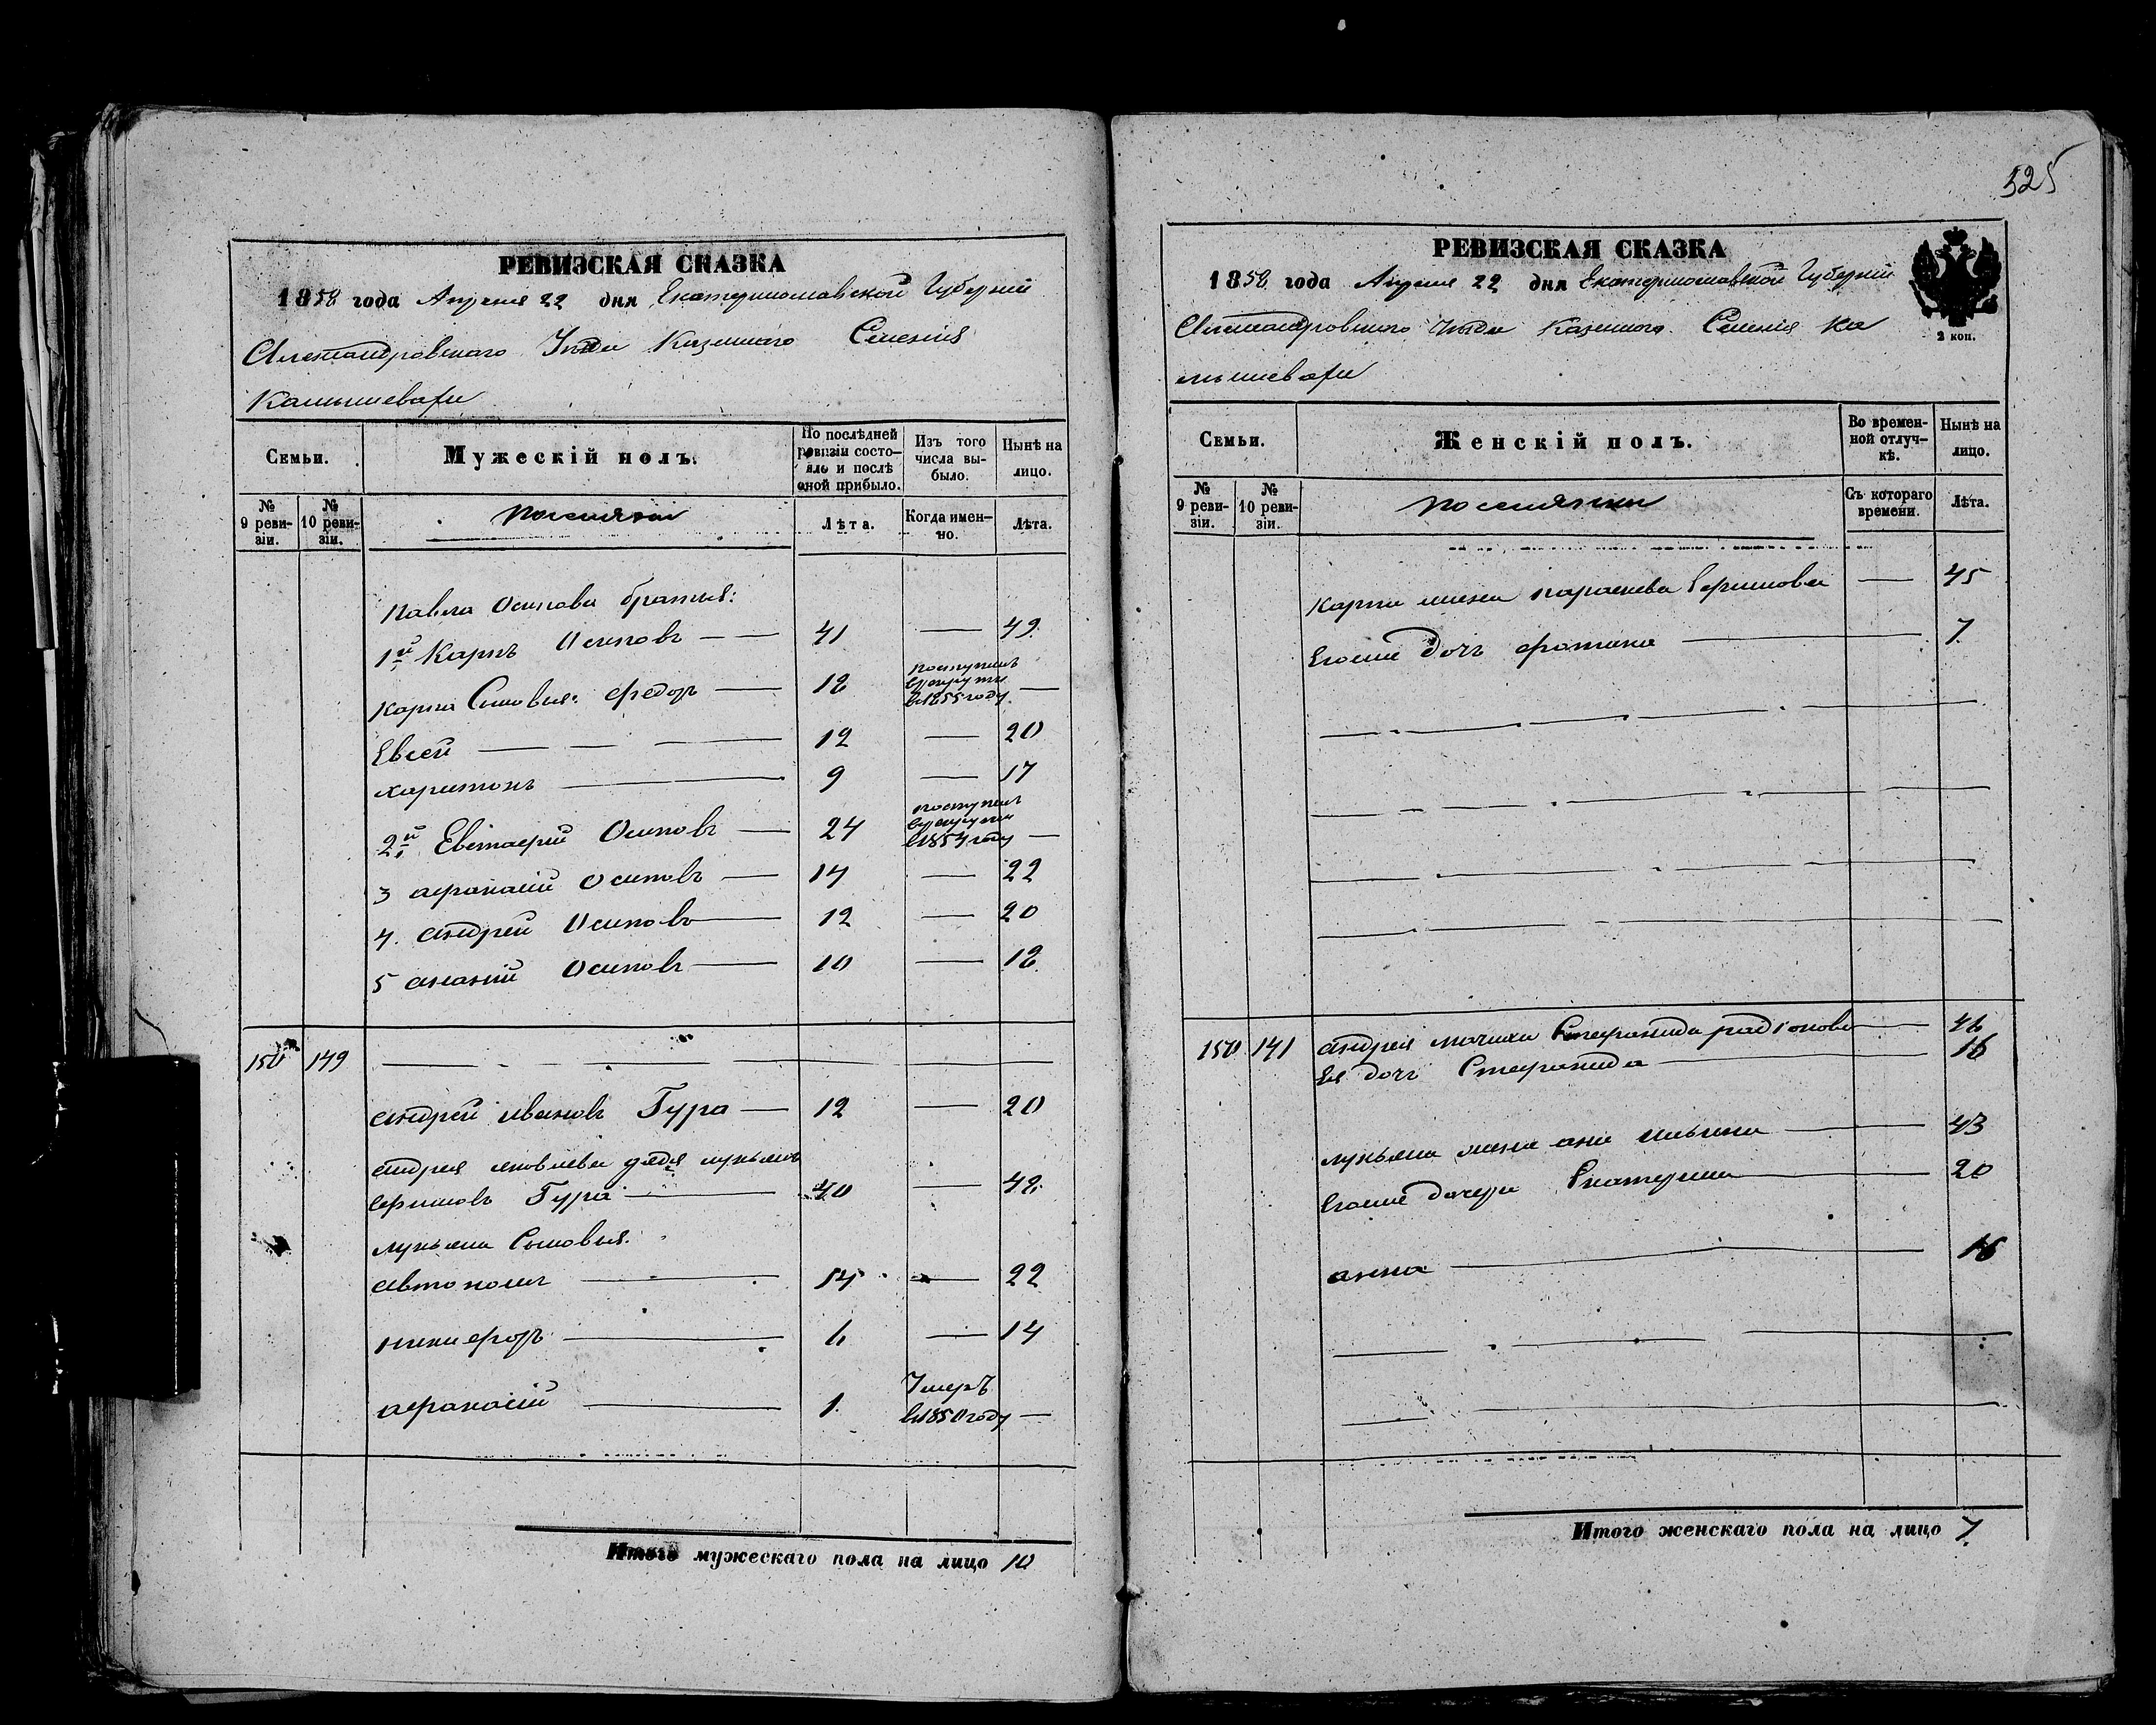 РЕВИЗСКАЯ СКАЗКА
1858 года Апреля 22 дня Екатеринославской Губерніи
Александровскаго Уѣзда Казеннаго Селенія
Камышевахи
Семьи.
Мужескій полъ.
По послѣдней ревизіи состояло и послѣ оной прибыло.
Изъ того числа выбыло.
Нынѣ на лицо.
№ 9 ревизіи.
№ 10 ревизіи.
поселяни
Лѣта.
Когда именно.
Лѣта.
Павла Осипова братья:
1й Карпъ Осиповъ — — 41 — 49
Карпа Сыновья: Федоръ — 18 поступилъ
в рекруты
в 1855 году —
Евсей — — — 12 — 20
Харитонъ — — 9 — 17
2й Евстафій Осиповъ — 24 поступилъ
в рекруты
в 1854 году —
3 Афанасій Осиповъ — 14 — 22
4. Андрей Осиповъ — 12 — 20
5 Ананій Осиповъ — 10 — 18
150 149
Андрей Ивановъ Гура — 12 — 20
Андрея Яковлева дядя Лукьянъ
Ефимовъ Гура — 40 — 48
Лукьяна Сыновья:
Автономъ — 14 — 22
Никифоръ — 6 — 14
Афанасій — 1 Умеръ
в 1850 году —
Итого мужескаго пола на лицо 10
525
РЕВИЗСКАЯ СКАЗКА
1858 года Апреля 22 дня Екатеринославской Губерніи
Александровскаго Уѣзда Казеннаго Селенія Ка
мышевахи
2 коп.
Семьи.
Женскій полъ.
Во временной отлучкѣ.
Нынѣ на лицо.
№ 9 ревизіи.
№ 10 ревизіи.
поселянки
Съ котораго времени.
Лѣта.
Карпа жена Параскева Ефимова — 45
Егоже дочь Фотина — 7
150 141 Андрея мачиха Стефанида Радіонова — 46
Ея дочь Стефанида — 16
Лукьяна жена Анна Ильина — 43
Егоже дочери Екатерина — 20
Анна — 16
Итого женскаго пола на лицо 7.